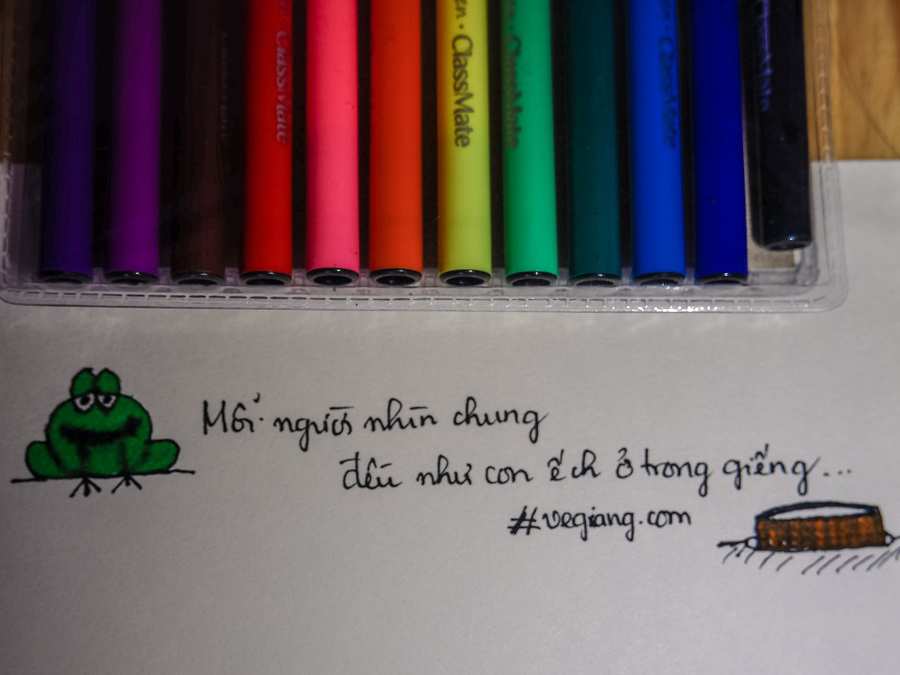 ClassMate
en · ClassMate
ClassMate
ClassMate
Mỗi người nhìn chung
đều như con ếch ở trong giếng...
#vegiang.com